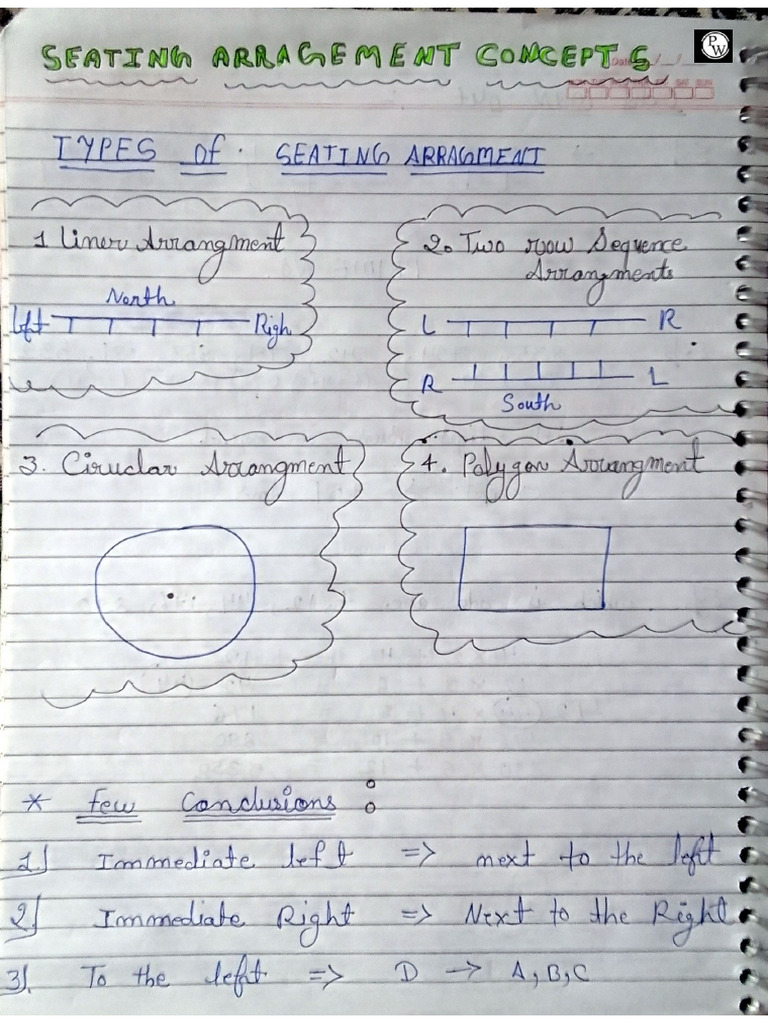 SEATING ARRAGEMENT CONCEPTS
PW
TYPES of. SEATING ARRAGMENT
1 Liner Arrangment
North
Left
Righ
2. Two row Sequence
Arrangments
L
R
R
L
South
3. Cirudar Arrangment
4. Polygon Arrangment
* few Conclusions :
1) Immediate left => next to the left
2) Immediate Right => Next to the Right
3). To the left => D → A, B, C